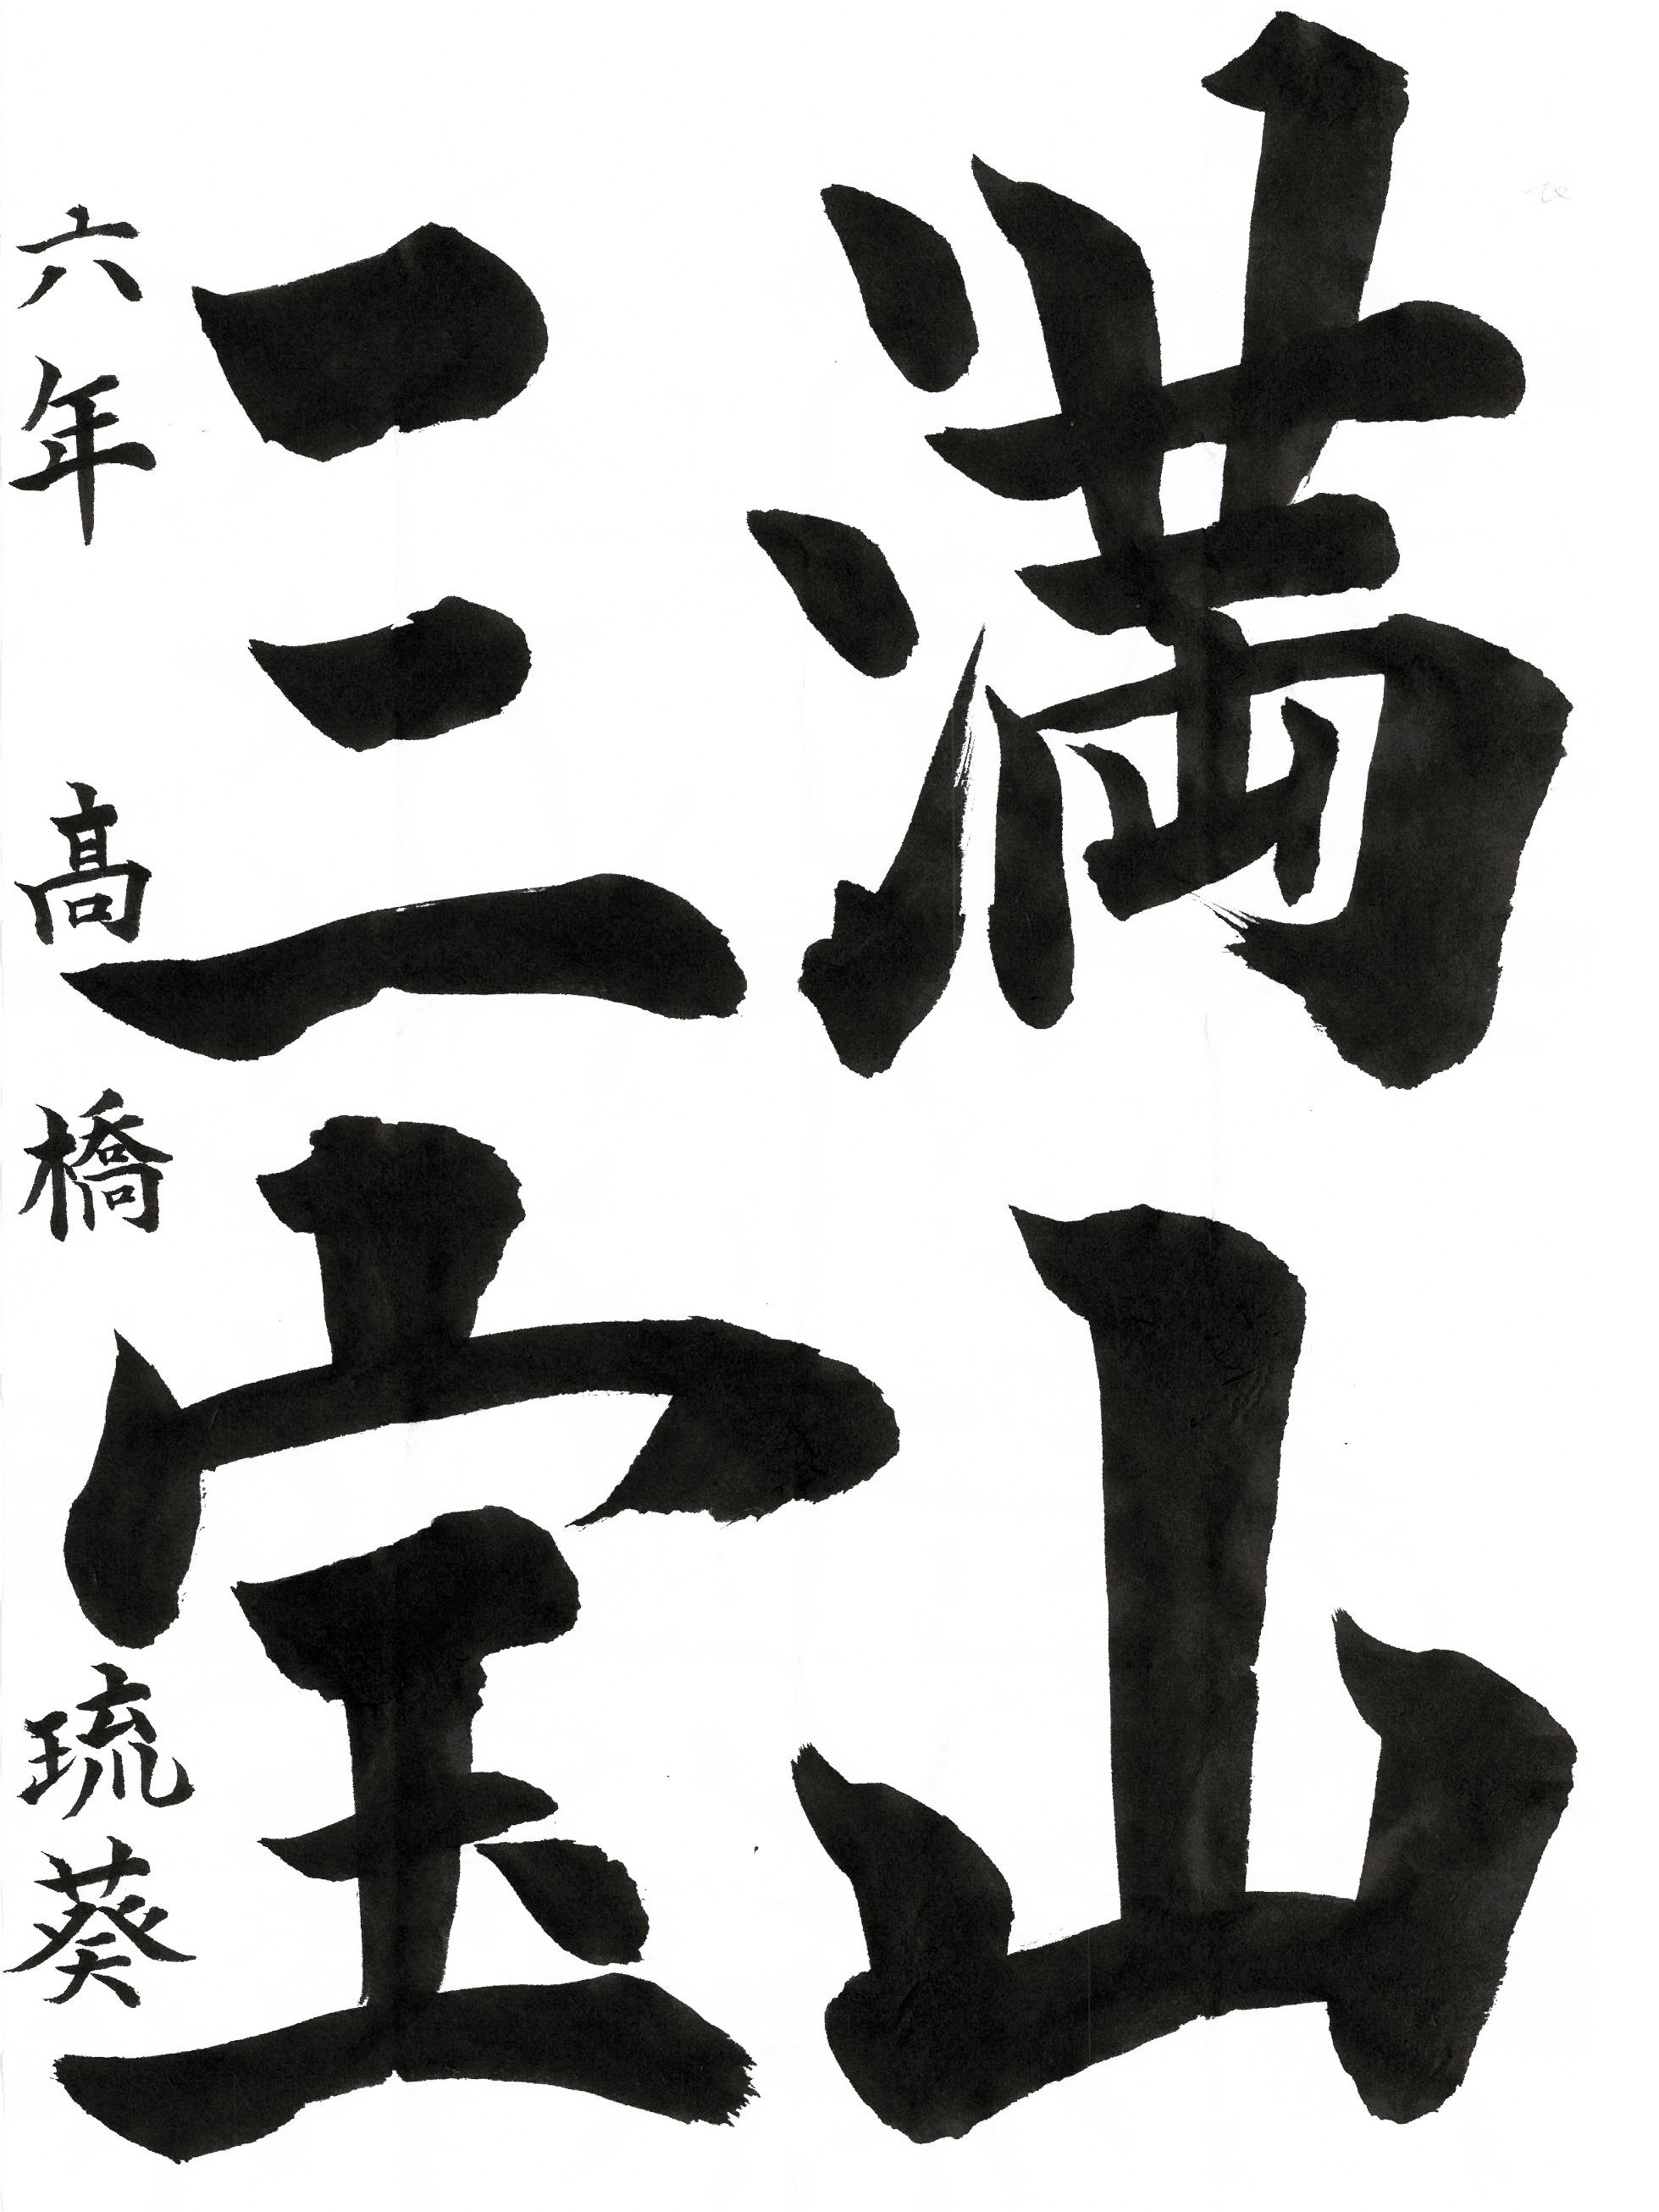 満山
三宝
六年 髙橋琉葵